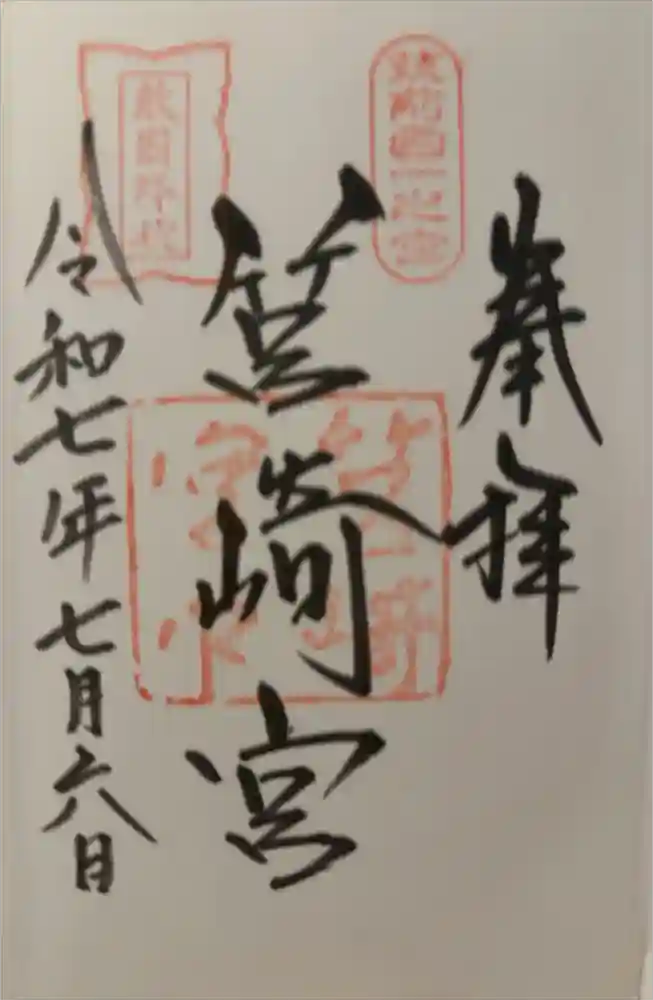 奉拝
筑前國一之宮
筥崎宮
筥崎
宮印
敵國降伏
令和七年七月六日